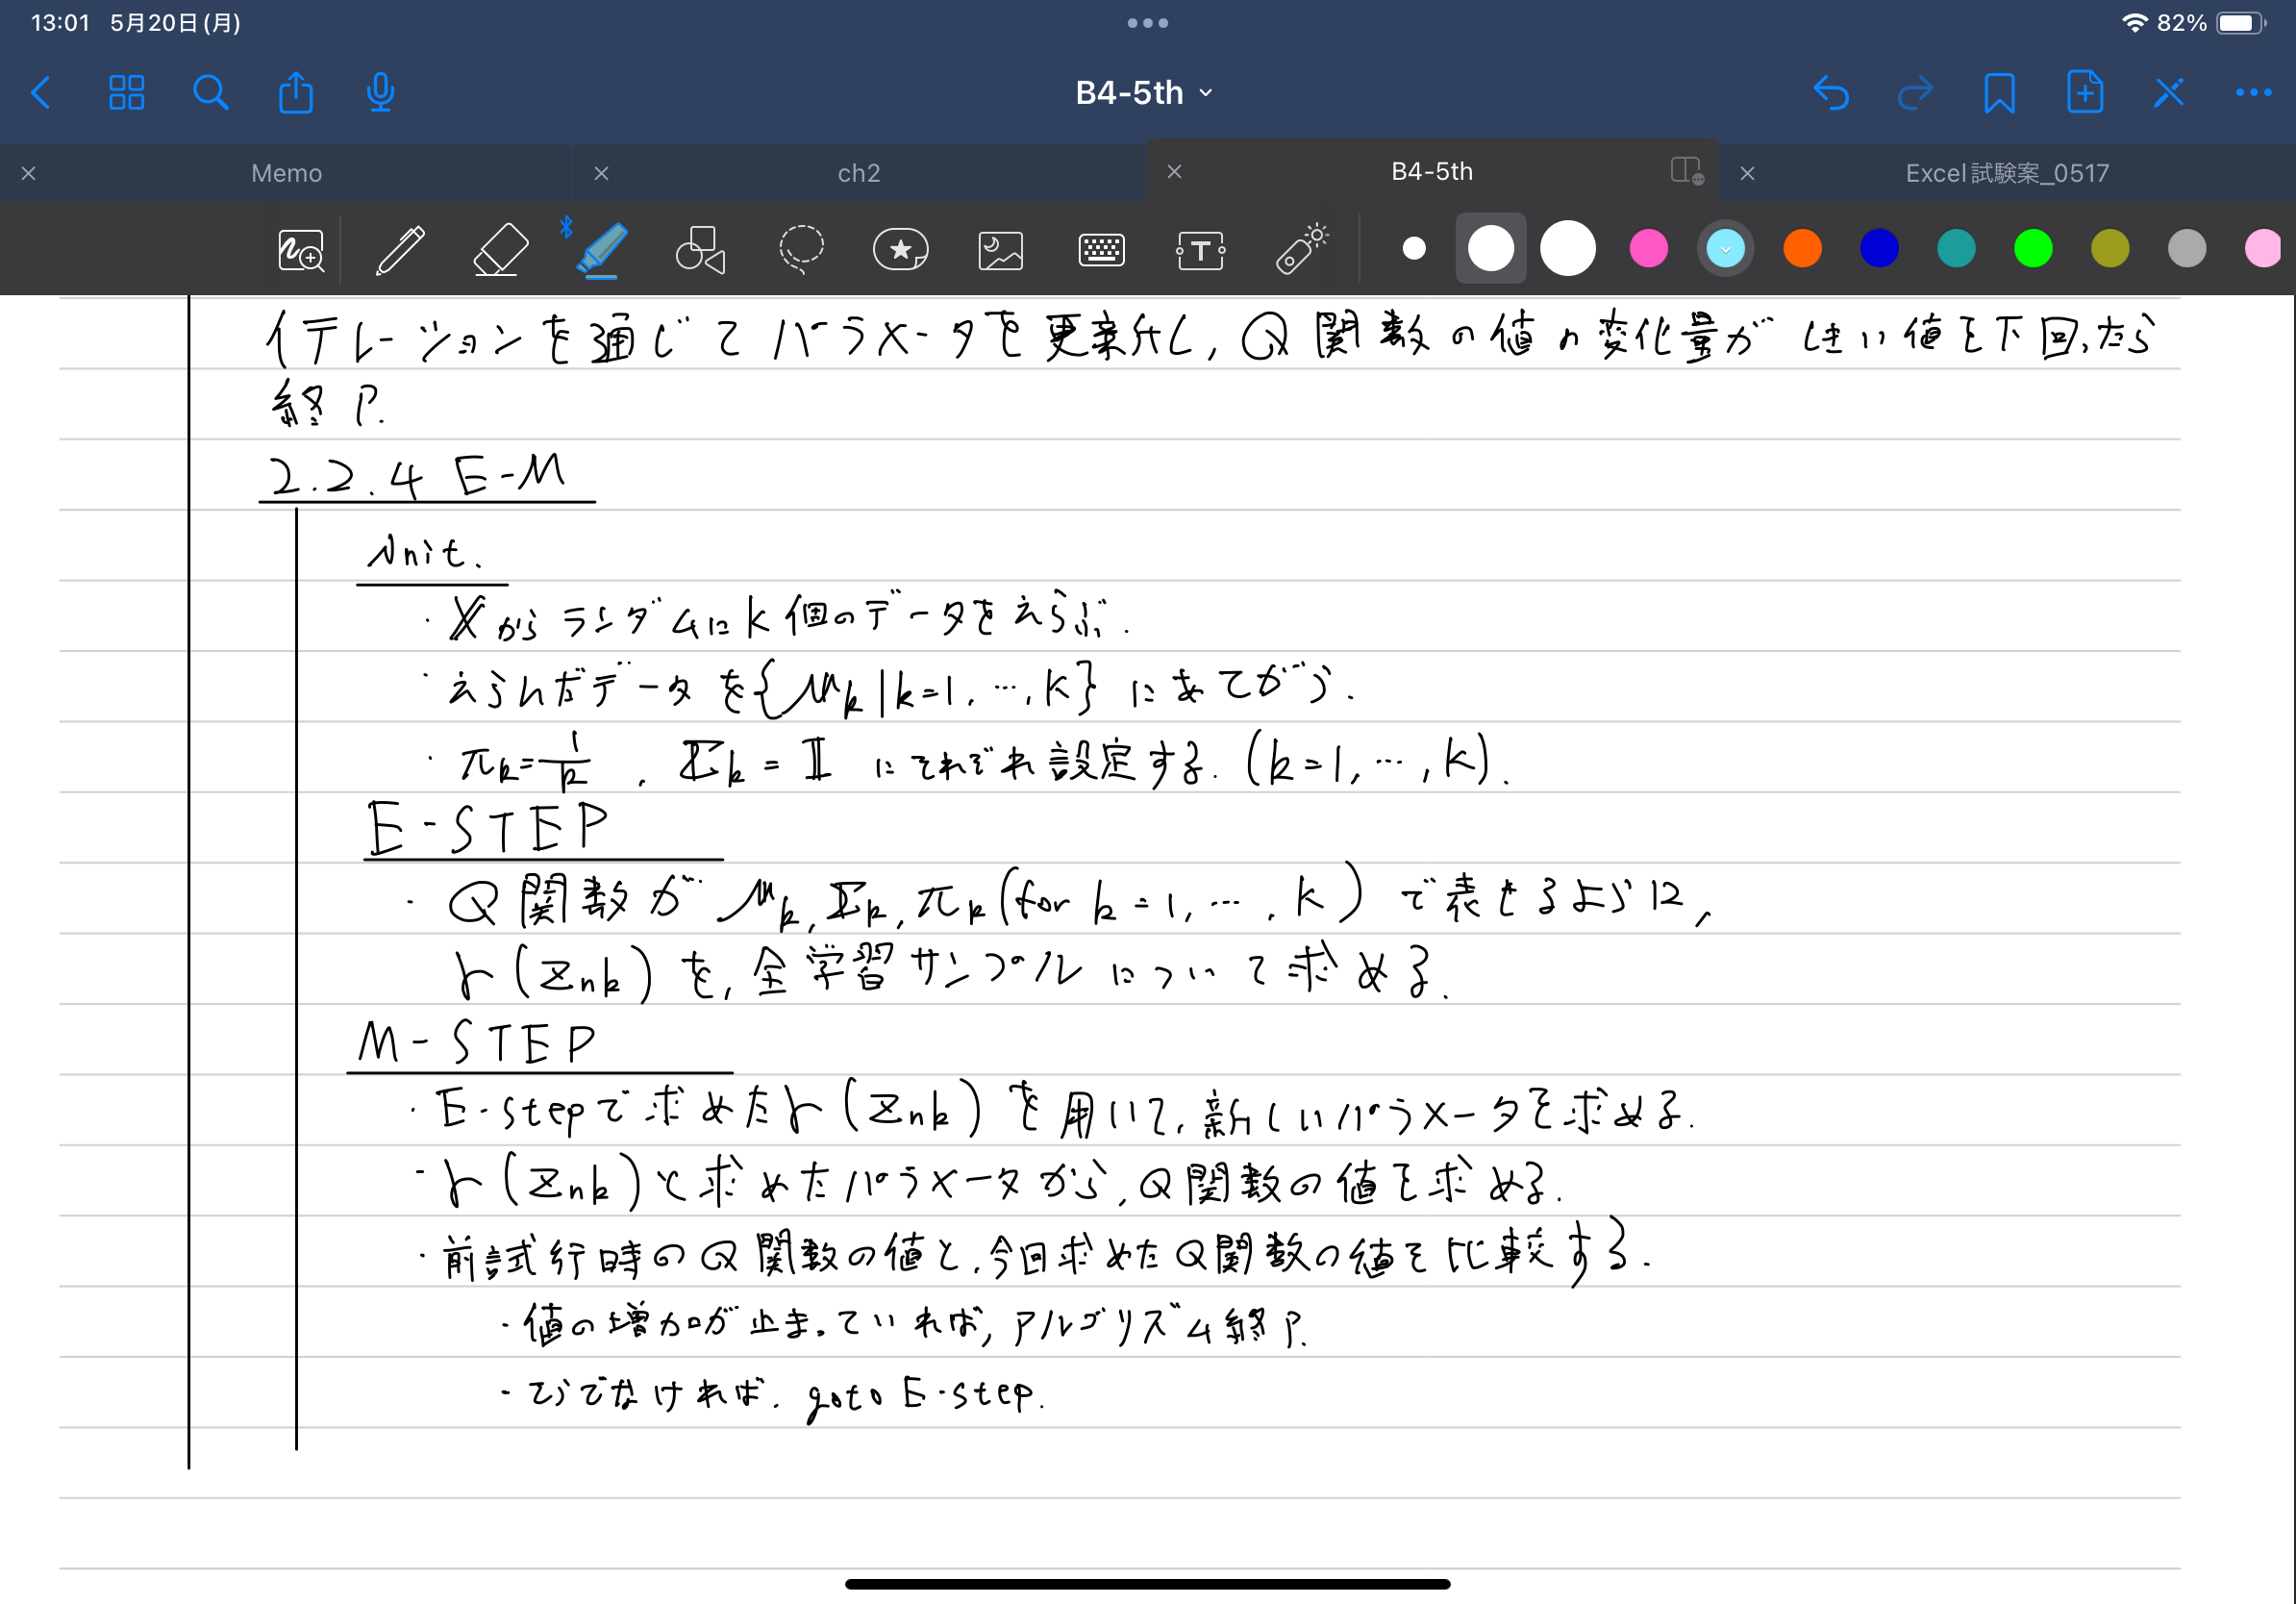 13:01 5月20日(月)
82%
B4-5th
Memo
ch2
B4-5th
Excel試験案_0517
イテレーションを通じてパラメータを更新し, Q関数の値の変化量がしきい値を下回ったら
終了.
2.2.4 E-M
Init.
・XからランダムにK個のデータをえらぶ.
・えらんだデータを{μk|k=1, …, K}にあてがう.
・πk=1/k, Σk=I にそれぞれ設定する. (k=1, …, K).
E-STEP
・Q関数がμk, Σk, πk(for k=1, …, K)で表せるように,
γ(znk)を, 全学習サンプルについて求める.
M-STEP
・E-stepで求めたγ(znk)を用いて, 新しいパラメータを求める.
・γ(znk)と求めたパラメータから, Q関数の値を求める.
・前試行時のQ関数の値と, 今回求めたQ関数の値を比較する.
・値の増加が止まっていれば, アルゴリズム終了.
・そうでなければ, goto E-step.